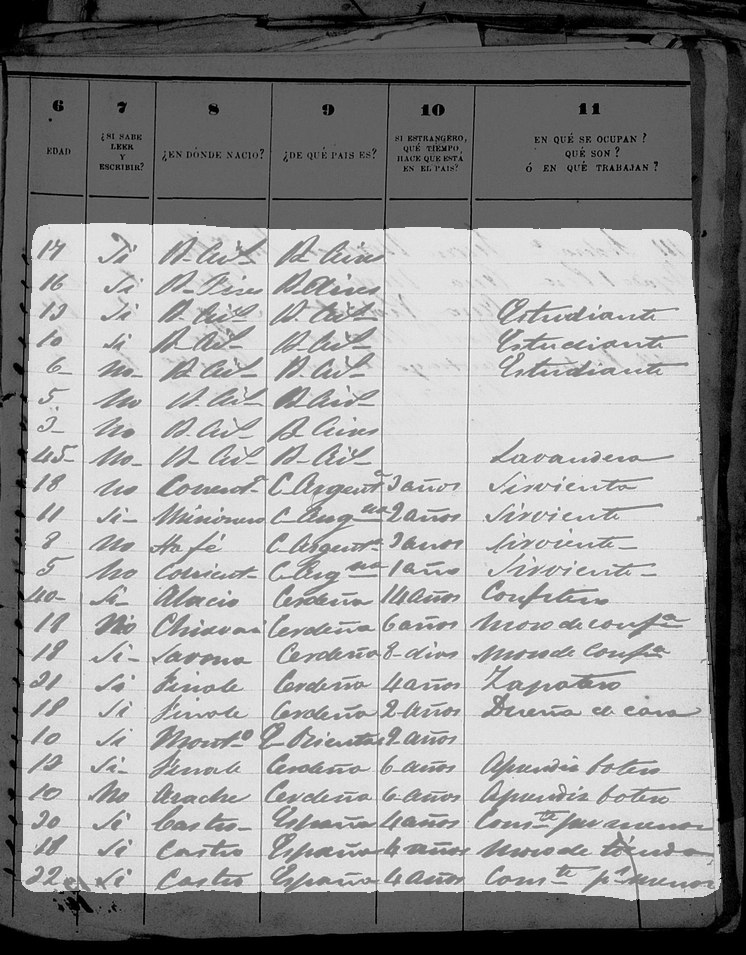 6 7 8 9 10 11
EDAD ¿SI SABE LEER Y ESCRIBIR? ¿EN DÓNDE NACIO? ¿DE QUÉ PAIS ES? SI ESTRANGERO, QUÉ TIEMPO HACE QUE ESTÁ EN EL PAIS? EN QUÉ SE OCUPAN? QUÉ SON? Ó EN QUÉ TRABAJAN?
Si B. Ais B. Aires
16 Si B. Aires B. Aires
13 Si B. Ais B. Ais Estudiante
10 Si B. Ais B. Ais Estudiante
6 No B. Ais B. Ais Estudiante
5 No B. Ais B. Ais
3 No B. Ais B. Aires
45 No B. Ais B. Ais Lavandera
18 No C. Argenta 3 años Sirvienta
11 Si Misiones C. Argna 2 años Sirviente
8 No Sta fé C. Argenta 3 años Sirviente
5 No Corrient C. Argna 1 año Sirviente
40 Si Cerdeña 14 años
18 No Chiavari Cerdeña 6 años Moso de confa
18 Si Savona Cerdeña 8 dias Moso de confa
21 Si Finale Cerdeña 4 años Zapatero
18 Si Finale Cerdeña 2 años Dueña de casa
10 Si Monto
12 Si Finale Cerdeña 6 años Aprendis botero
10 No Cerdeña 6 años Aprendis botero
Si Castro España 4 años Comte por menor
18 Si Castro España 4 años Moso de tienda
22 Si Castro España 4 años Comte pr menor